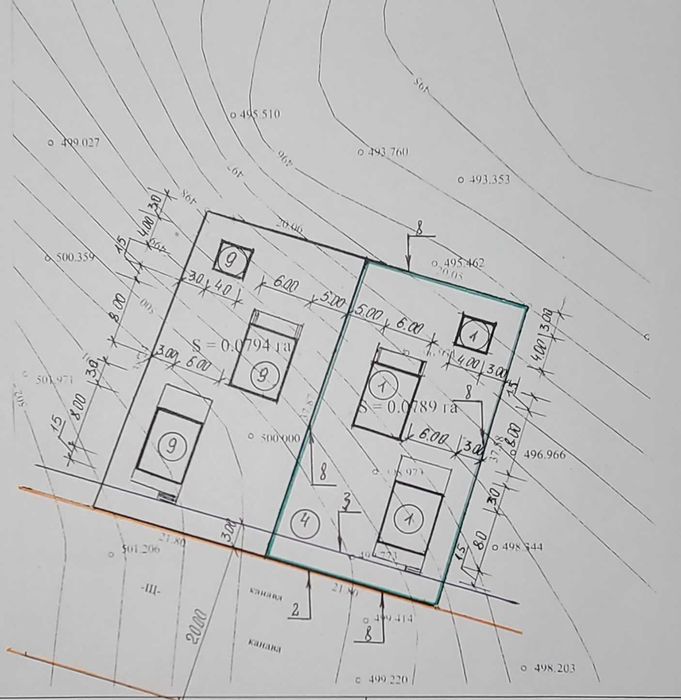 495
495.510
499.027
496
493.760
493.353
497
498
3.0
4.00
1.5
499
20.06
8
495.462
20.05
500.359
9
3.0
4.0
6.00
5.00
5.00
6.00
1
3.00
4.00
8.00
500
S = 0.0794 га
3.00
6.00
9
1
4.00
3.00
8
1.5
S = 0.0789 га
501.971
502
3.0
8.00
1.5
9
500.000
6.00
3.00
8.00
37.88
496.966
3.0
8
4
3
1
498.344
8.0
1.5
3.00
21.80
501.206
-Щ-
канава
канава
21.80
2
8
499.414
20.00
499.220
498.203